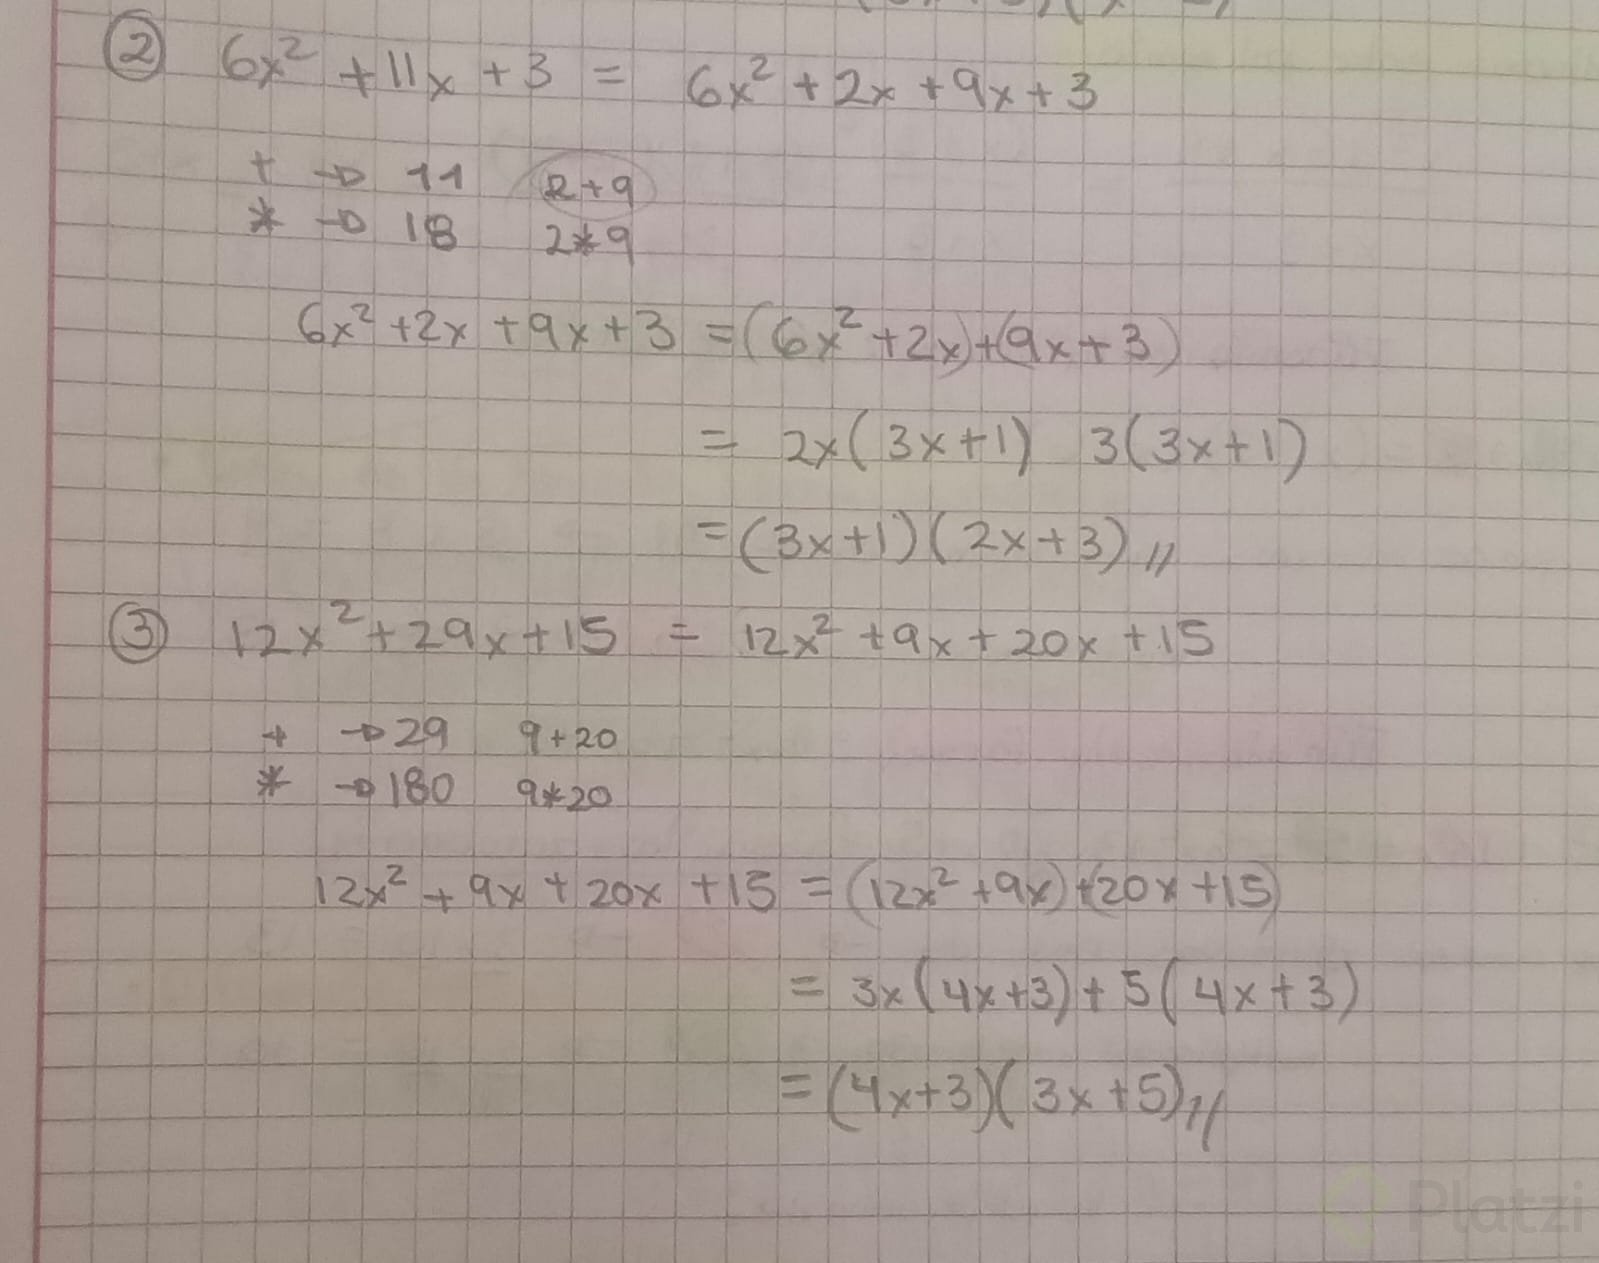 ② 6x² + 11x + 3 = 6x² + 2x + 9x + 3
+ → 11 2+9
* → 18 2*9
6x² + 2x + 9x + 3 = (6x² + 2x) + (9x + 3)
= 2x(3x+1) 3(3x+1)
= (3x+1)(2x+3) //
③ 12x² + 29x + 15 = 12x² + 9x + 20x + 15
+ → 29 9+20
* → 180 9*20
12x² + 9x + 20x + 15 = (12x² + 9x) + (20x + 15)
= 3x(4x+3) + 5(4x+3)
= (4x+3)(3x+5) //
Platzi